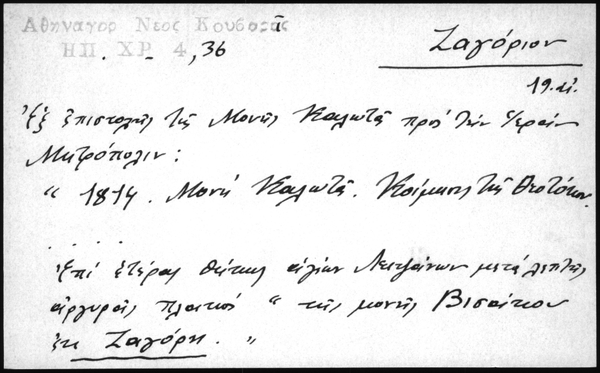 Αθηναγορ Νεος Κουβαρᾶς
ΗΠ. ΧΡ 4, 36
Ζαγόριον
19.αἰ.
Ἐξ ἐπιστολῆς τῆς Μονῆς Καλωτᾶ πρός τήν Ἱεράν
Μητρόπολιν:
" 1814. Μονή Καλωτᾶ. Κοίμησις τῆς Θεοτόκου.
. . . .
Ἐπί ἑτέρας θήκης ἁγίων Λειψάνων μετά λεπτῆς
ἀργυρᾶς πλακός " τῆς μονῆς Βισαίκου
ἐκ Ζαγόρη. "